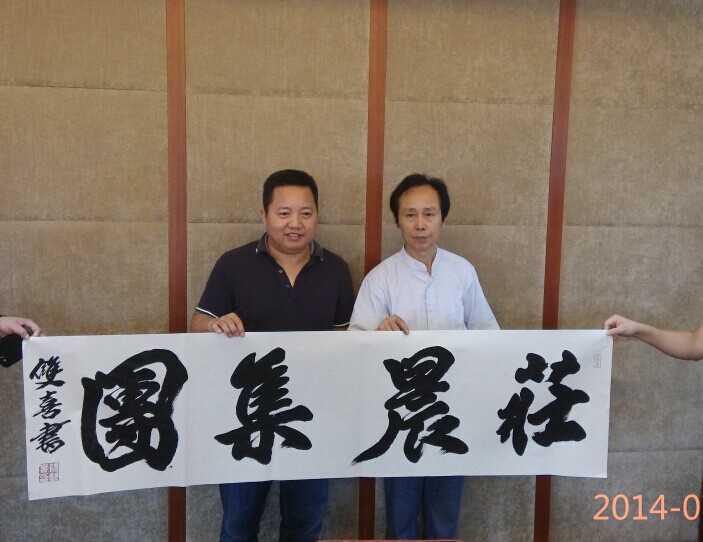 莊晨集團
雙喜書
2014-0